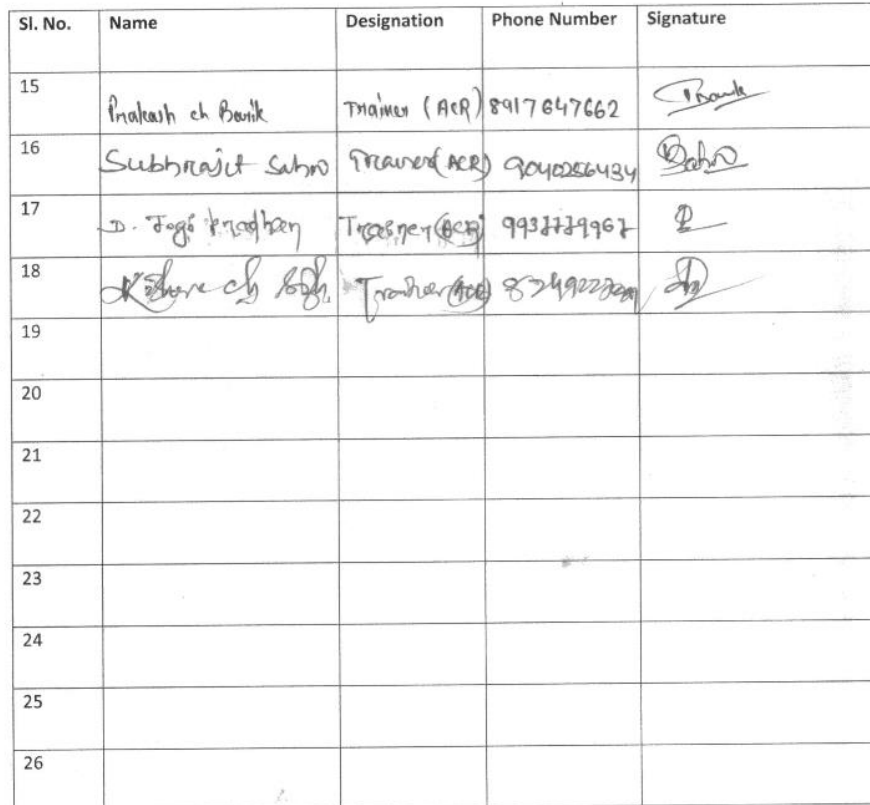 Sl. No. Name Designation Phone Number Signature
15 Prakash ch Barik Trainer (ACR) 8917647662 Barik
16 Subhrajit Sahoo Trainer (ACR) 9040256434 Sahoo
17 D. Jogi Pradhan Trainer (ACR) 9937779967
18 Kishore ch Trainer (ACR)
19
20
21
22
23
24
25
26